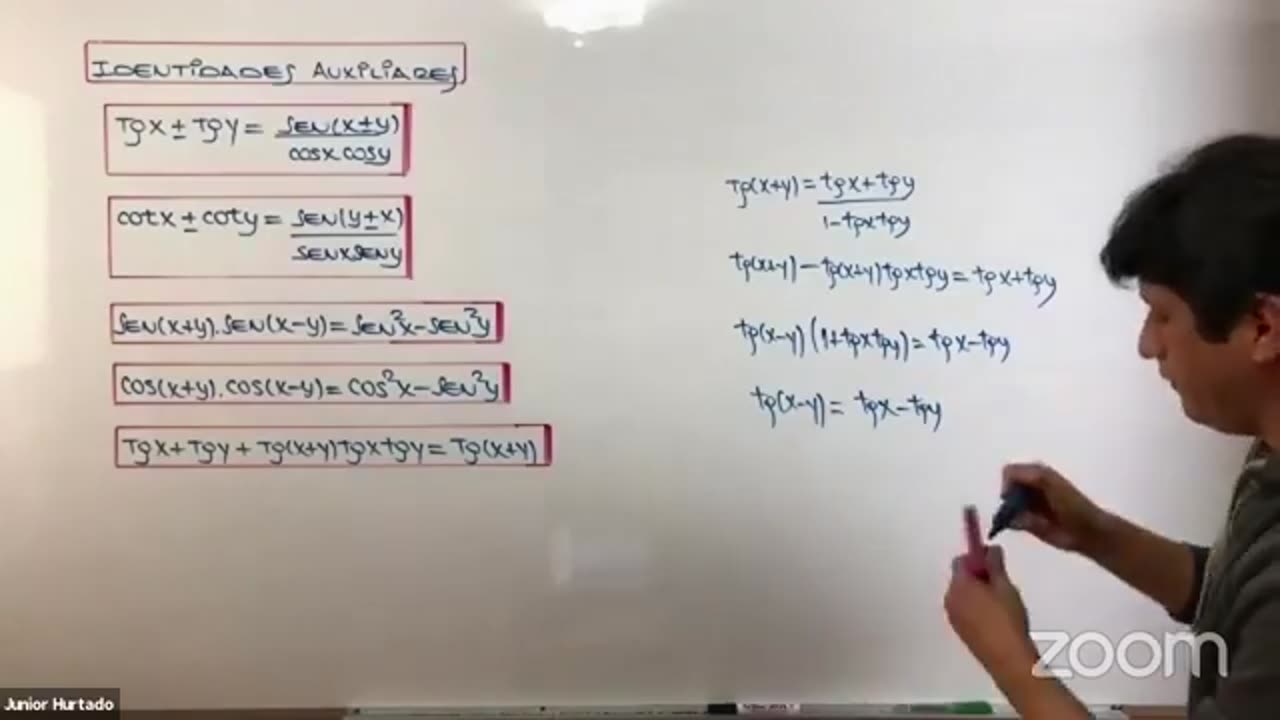 IDENTIDADES AUXILIARES
Tgx ± Tgy = SEN(x±y)
cosx cosy
cotx ± coty = SEN(y±x)
SENxSENy
SEN(x+y).SEN(x-y) = SEN²x - SEN²y
cos(x+y).cos(x-y) = cos²x - SEN²y
Tgx + Tgy + Tg(x+y)Tgxtgy = Tg(x+y)
Tg(x+y) = tgx + tgy
1 - tgxtgy
tg(x+y) - tg(x+y)tgxtgy = tgx + tgy
tg(x-y)(1+tgxtgy) = tgx - tgy
tg(x-y) = tgx - tgy
zoom
Junior Hurtado